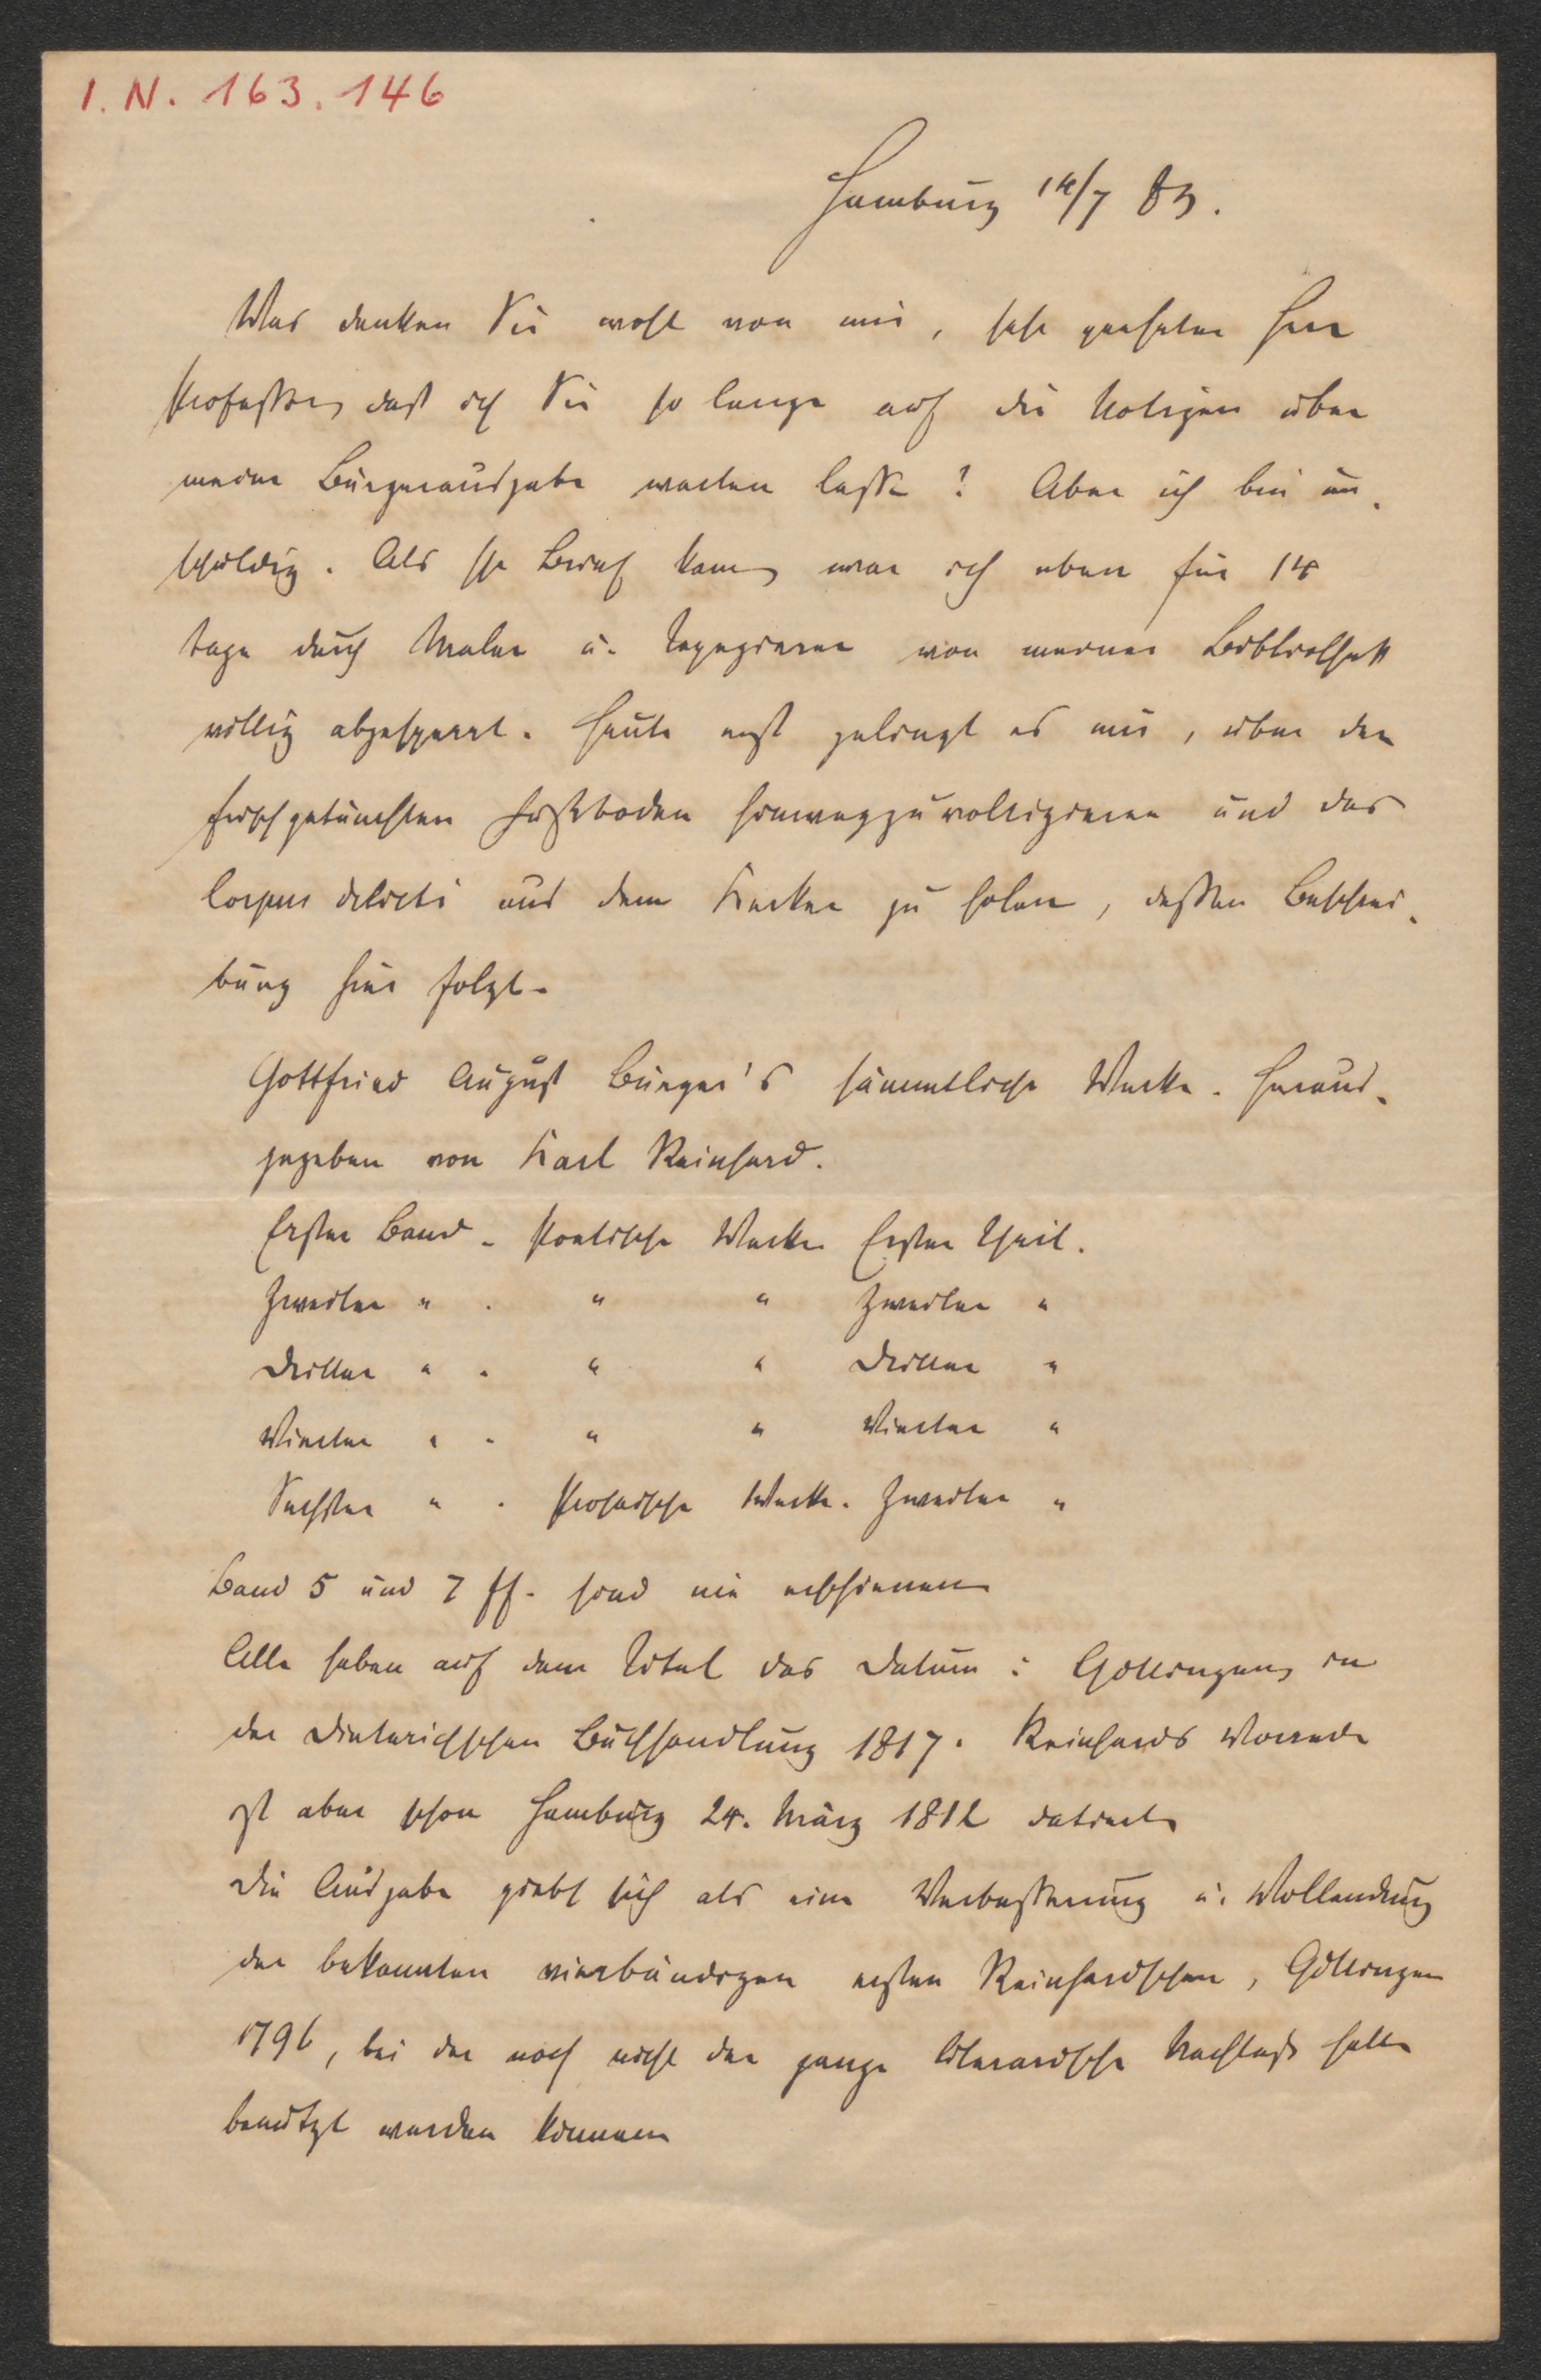 I.N. 163.146
Hamburg 14/7 83.
Was denken Sie wohl von mir, sehr geehrter Herr
Professor, daß ich Sie so lange auf die Notizen über
meine Bürgerausgabe warten lasse? Aber ich bin un-
schuldig. Als Ihr Brief kam, war ich eben für 14
Tage durch Maler u. Tapezierer von meiner Bibliothek
völlig abgesperrt. Heute erst gelingt es mir, über den
frischgetünchten Fußboden hinwegzuvoltigieren und das
Corpus delicti aus dem Kerker zu holen, dessen Beschrei-
bung hier folgt.
Gottfried August Bürger's sämmtliche Werke. Heraus-
gegeben von Karl Reinhard.
Erster Band. Poetische Werke Erster Theil.
Zweiter " . " " Zweiter "
Dritter " . " " Dritter "
Vierter " . " " Vierter "
Sechster " . Prosaische Werke. Zweiter "
Band 5 und 7 ff. sind nie erschienen
Alle haben auf dem Titel das Datum: Göttingen, in
der Dieterichschen Buchhandlung 1817. Reinhards Vorrede
ist aber schon Hamburg 24. März 1812 datiert.
Die Ausgabe giebt sich als eine Verbesserung u. Vollendung
der bekannten vierbändigen ersten Reinhardschen, Göttingen
1796, bei der noch nicht der ganze literarische Nachlaß hatte
benutzt werden können